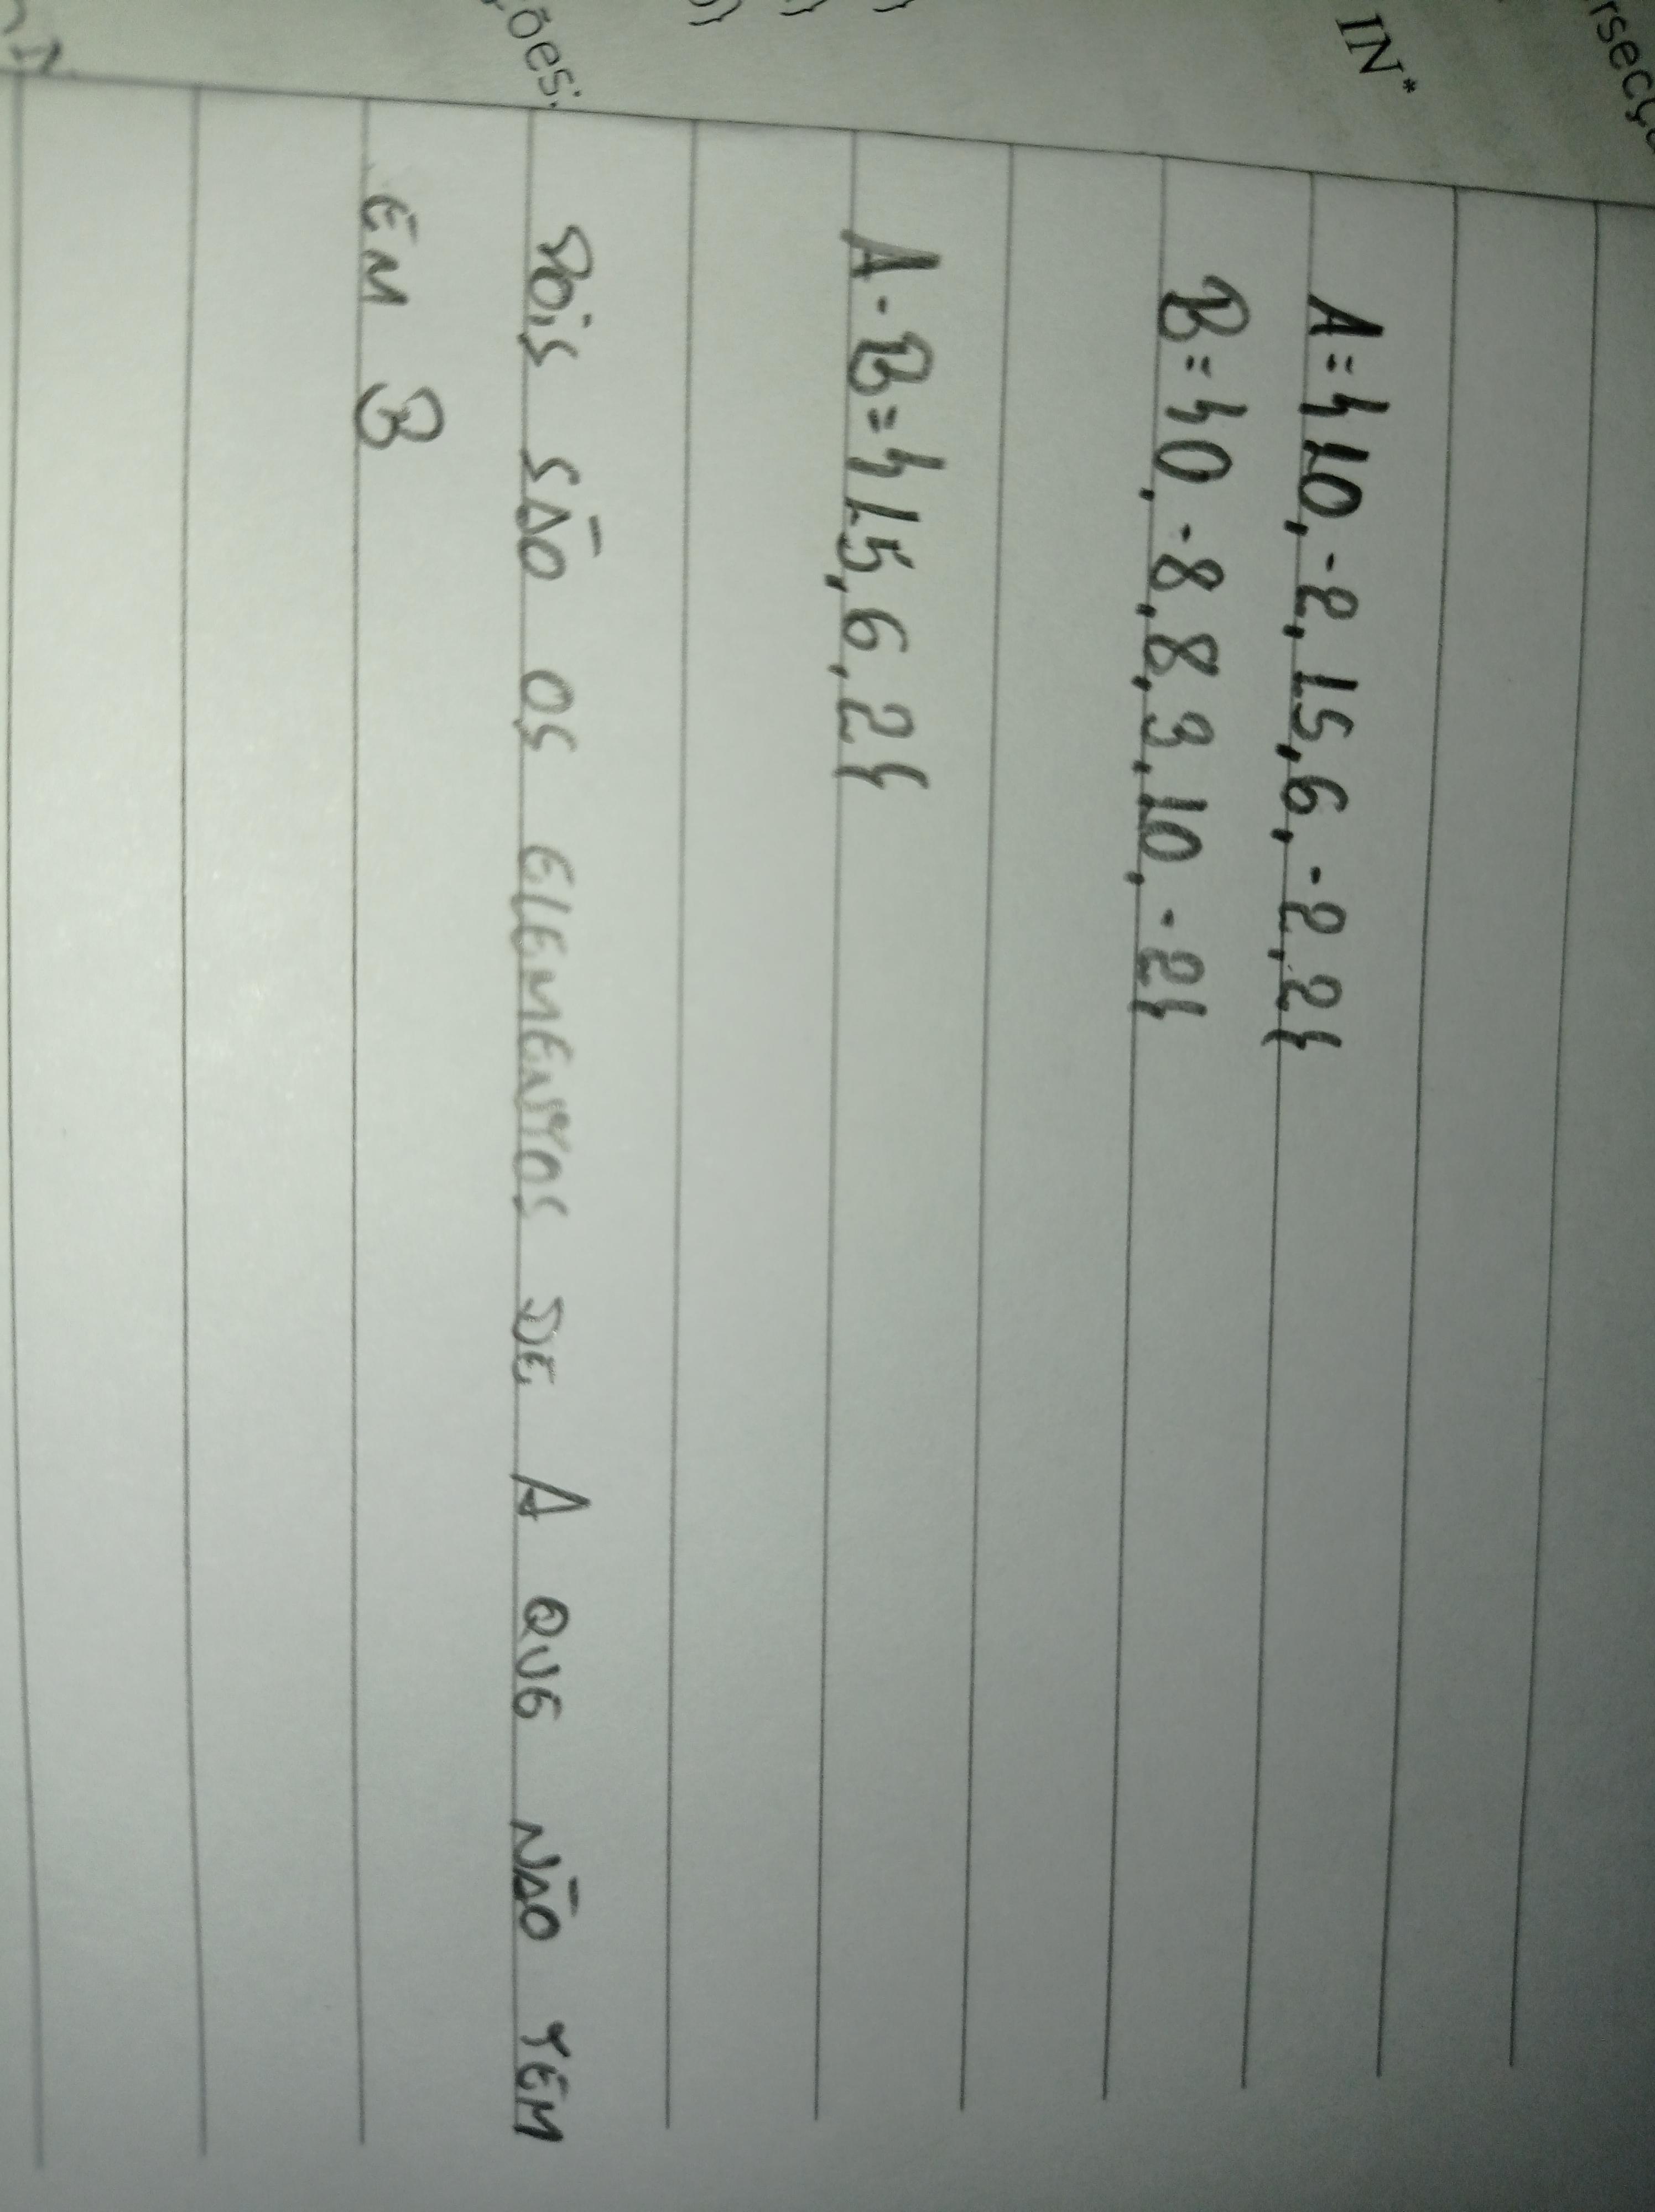 IN*
A={10,-2,15,6,-2,2}
B={0,-8,8,3,10,-2}
A-B={15,6,2}
ões:
POIS SÃO OS ELEMENTOS DE A QUE NÃO TEM
EM B